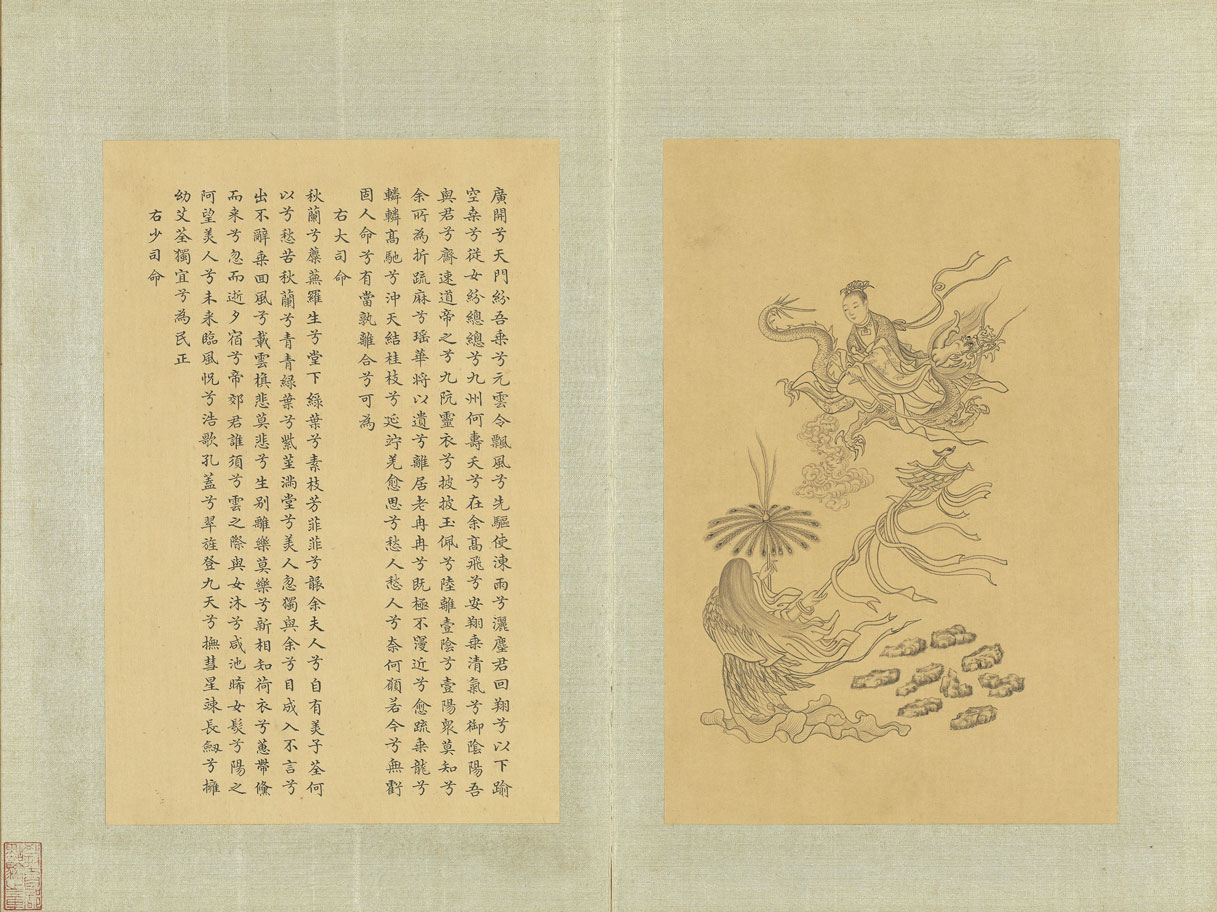 廣開兮天門紛吾乘兮元雲令飄風兮先驅使涷雨兮灑塵君回翔兮以下踰
空桑兮從女紛總總兮九州何壽夭兮在余高飛兮安翔乘清氣兮御陰陽吾
與君兮齋速道帝之兮九阬靈衣兮披披玉佩兮陸離壹陰兮壹陽眾莫知兮
余所為折疏麻兮瑤華將以遺兮離居老冉冉兮既極不寖近兮愈疏乘龍兮
轔轔高馳兮沖天結桂枝兮延竚羌愈思兮愁人愁人兮柰何願若今兮無虧
固人命兮有當孰離合兮可為
右大司命
秋蘭兮蘪蕪羅生兮堂下綠葉兮素枝芳菲菲兮襲余夫人兮自有美子荃何
以兮愁苦秋蘭兮青青綠葉兮紫莖滿堂兮美人忽獨與余兮目成入不言兮
出不辭乘回風兮載雲旗悲莫悲兮生别離樂莫樂兮新相知荷衣兮蕙帶儵
而來兮忽而逝夕宿兮帝郊君誰須兮雲之際與女沐兮咸池晞女髮兮陽之
阿望美人兮未來臨風怳兮浩歌孔蓋兮翠旌登九天兮撫彗星竦長劔兮擁
幼艾荃獨宜兮為民正
右少司命